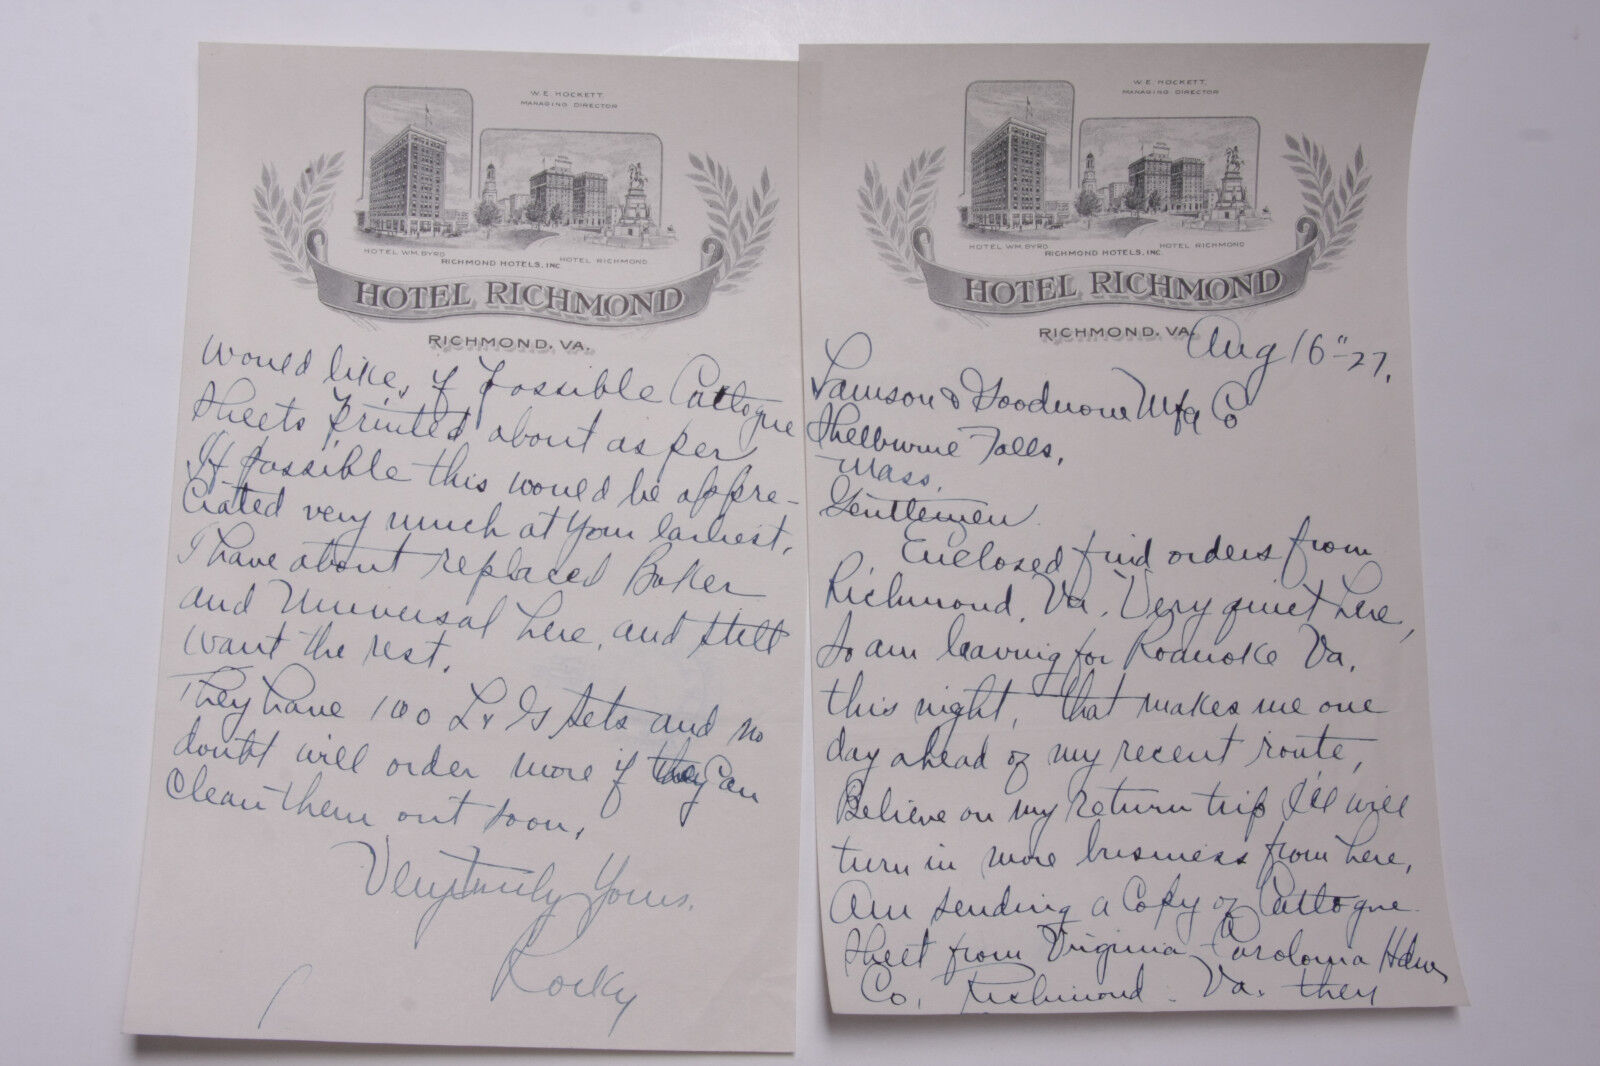 W. E. HOCKETT,
MANAGING DIRECTOR
HOTEL WM. BYRD
HOTEL RICHMOND
RICHMOND HOTELS, INC.
HOTEL RICHMOND
RICHMOND, VA.
Aug 16"-27.
Lamson & Goodnow Mfg Co
Shelburne Falls,
Mass.
Gentlemen
Enclosed find orders from
Richmond, Va. Very quiet here,
So am leaving for Roanoke Va.
this night, that makes me one
day ahead of my recent route,
Believe on my return trip I'll will
turn in more business from here,
Am sending a Copy of Cattogue
Sheet from Virginia-Caroloma Hdw
Co, Richmond. Va. they
W. E. HOCKETT,
MANAGING DIRECTOR
HOTEL WM. BYRD
HOTEL RICHMOND
RICHMOND HOTELS, INC.
HOTEL RICHMOND
RICHMOND, VA.
would like, if possible Cattogue
Sheets printed about as per
If possible this would be appre-
ciated very much at your earliest,
I have about replaced Baker
and Universal here, and still
want the rest.
They have 100 L & G sets and no
doubt will order more if they can
Clean them out soon,
Very truly Yours.
Rocky